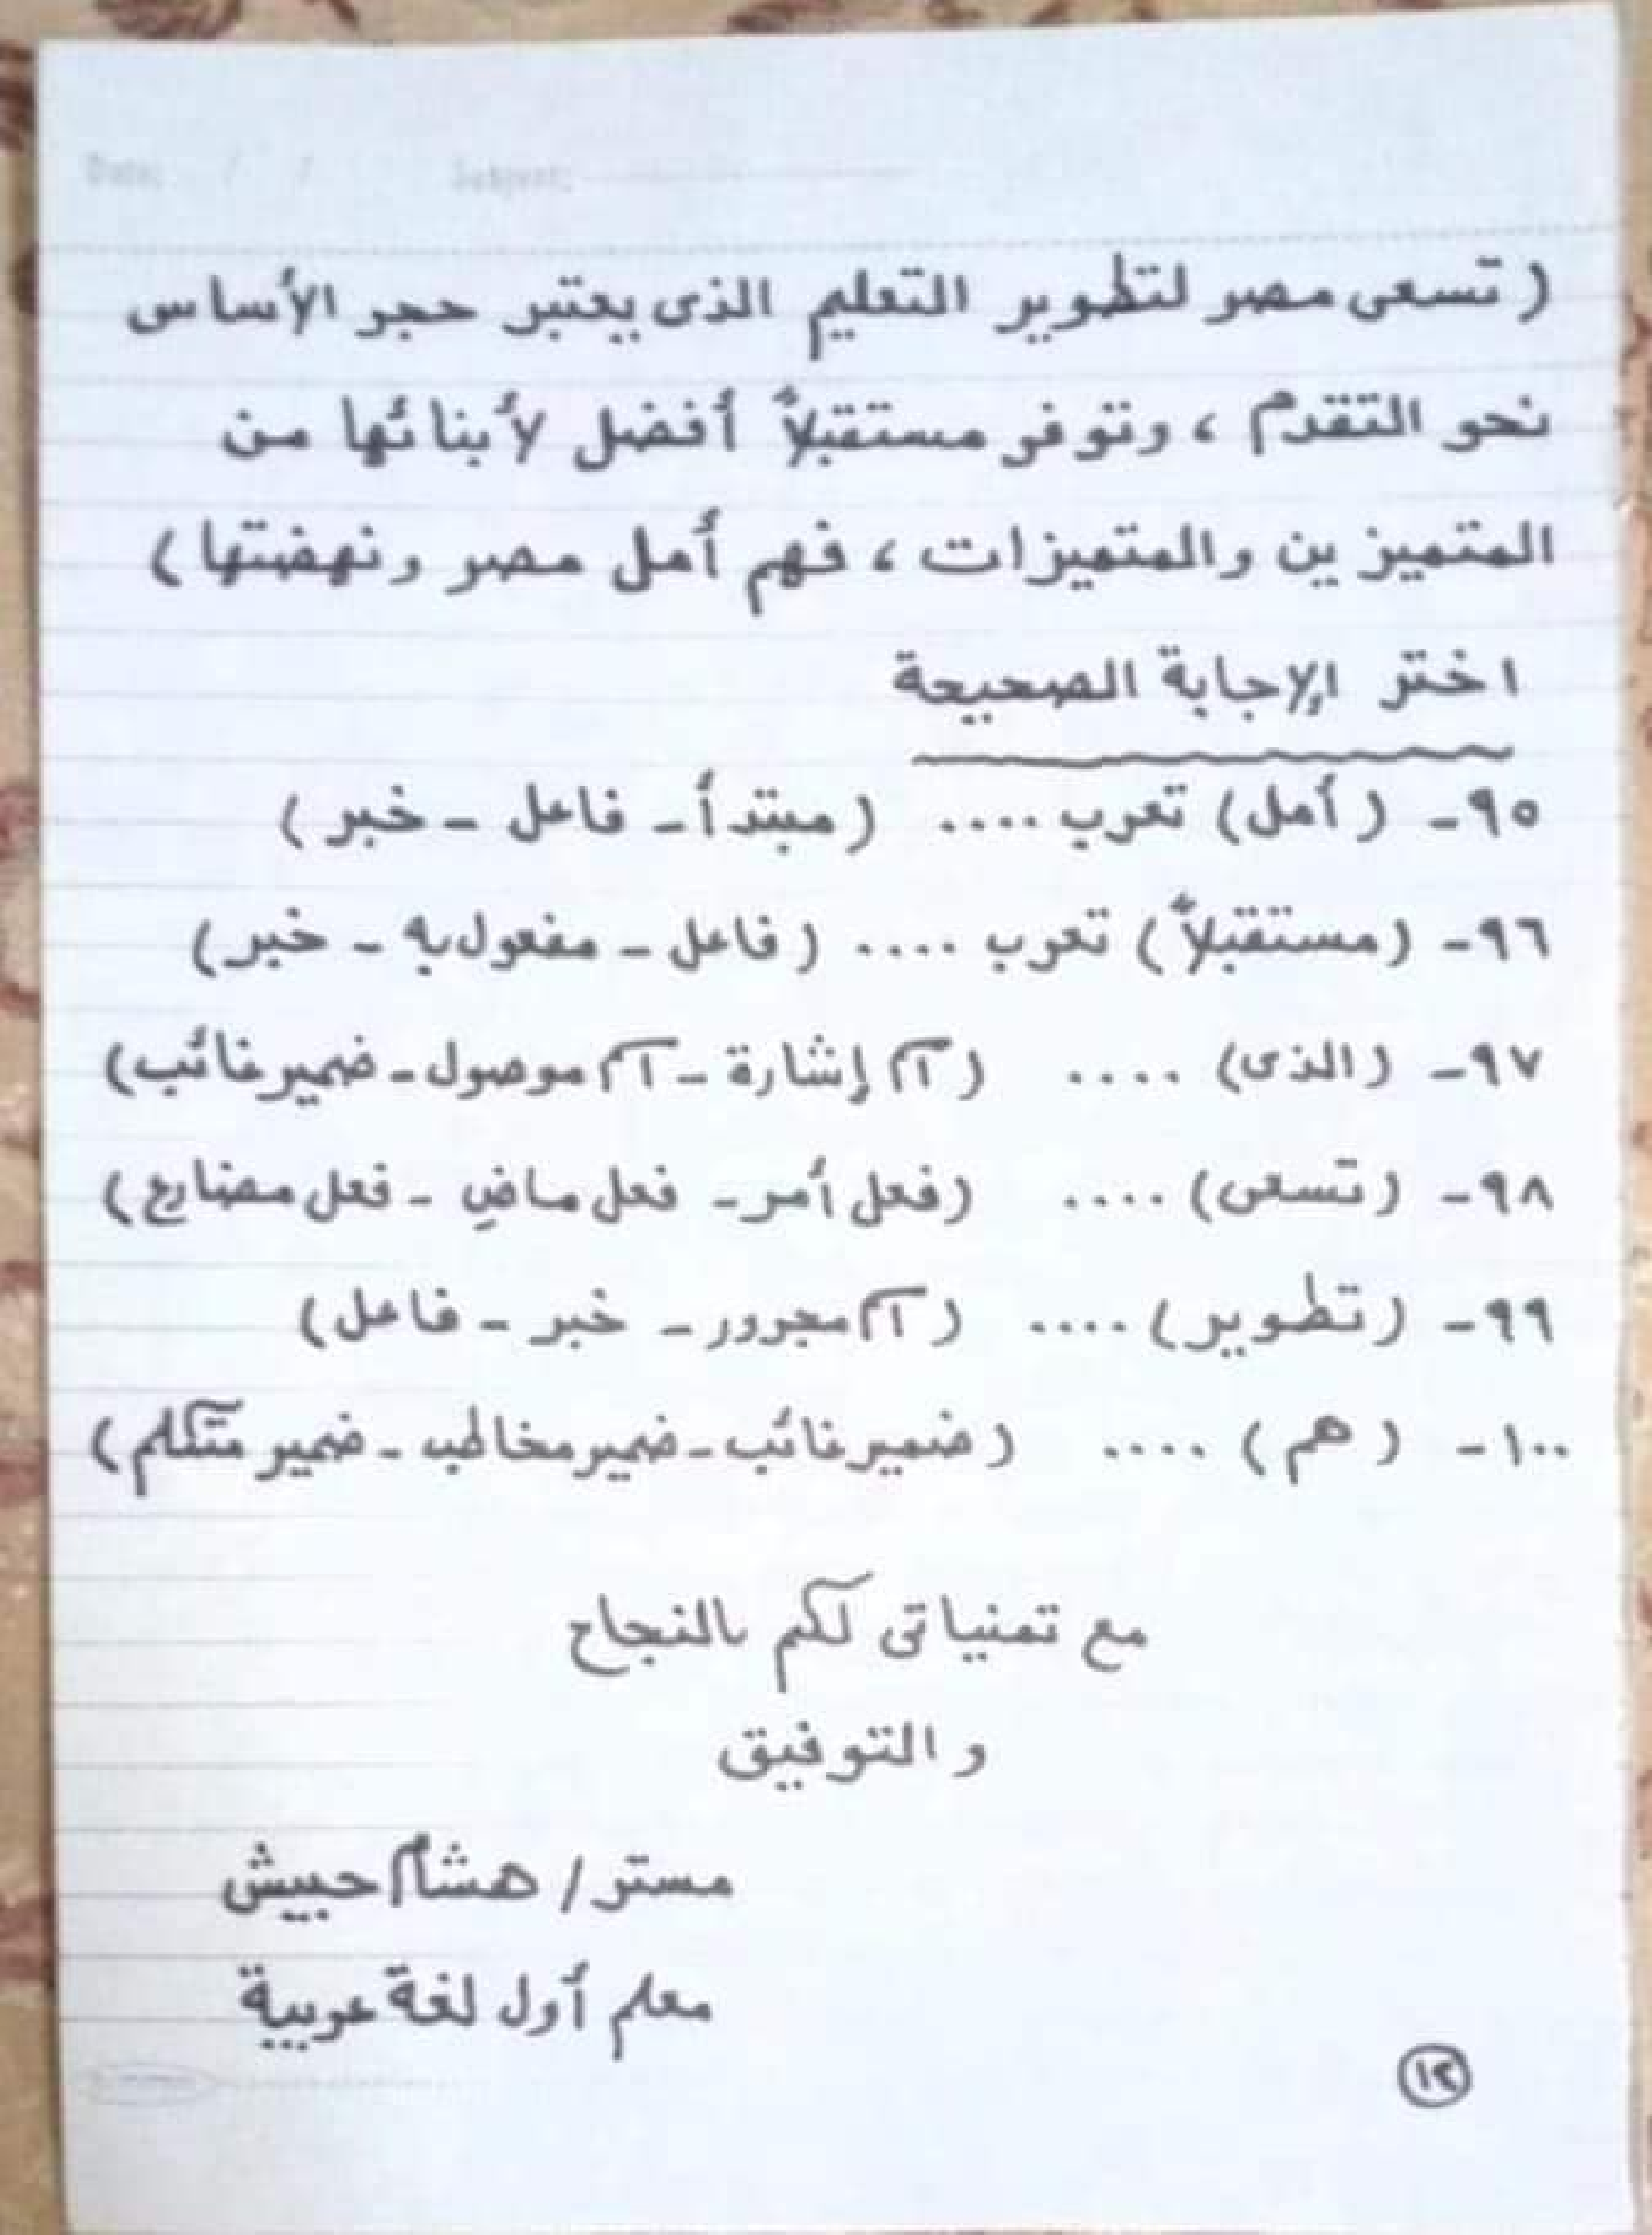 Date: / / Subject:
( تسعى مصر لتطوير التعليم الذى يعتبر حجر الأساس
نحو التقدم ، وتوفر مستقبلاً أفضل لأبنائها من
المتميزين والمتميزات ، فهم أمل مصر ونهضتها )
اختر الإجابة الصحيحة
٩٥- ( أمل ) تعرب .... ( مبتدأ - فاعل - خبر )
٩٦- ( مستقبلاً ) تعرب .... ( فاعل - مفعول به - خبر )
٩٧- ( الذى ) .... ( اسم إشارة - اسم موصول - ضمير غائب )
٩٨- ( تسعى ) .... ( فعل أمر - فعل ماضٍ - فعل مضارع )
٩٩- ( تطوير ) .... ( اسم مجرور - خبر - فاعل )
١٠٠- ( هم ) .... ( ضمير غائب - ضمير مخاطب - ضمير متكلم )
مع تمنياتى لكم بالنجاح
و التوفيق
مستر / هشام حبيش
معلم أول لغة عربية
١٢